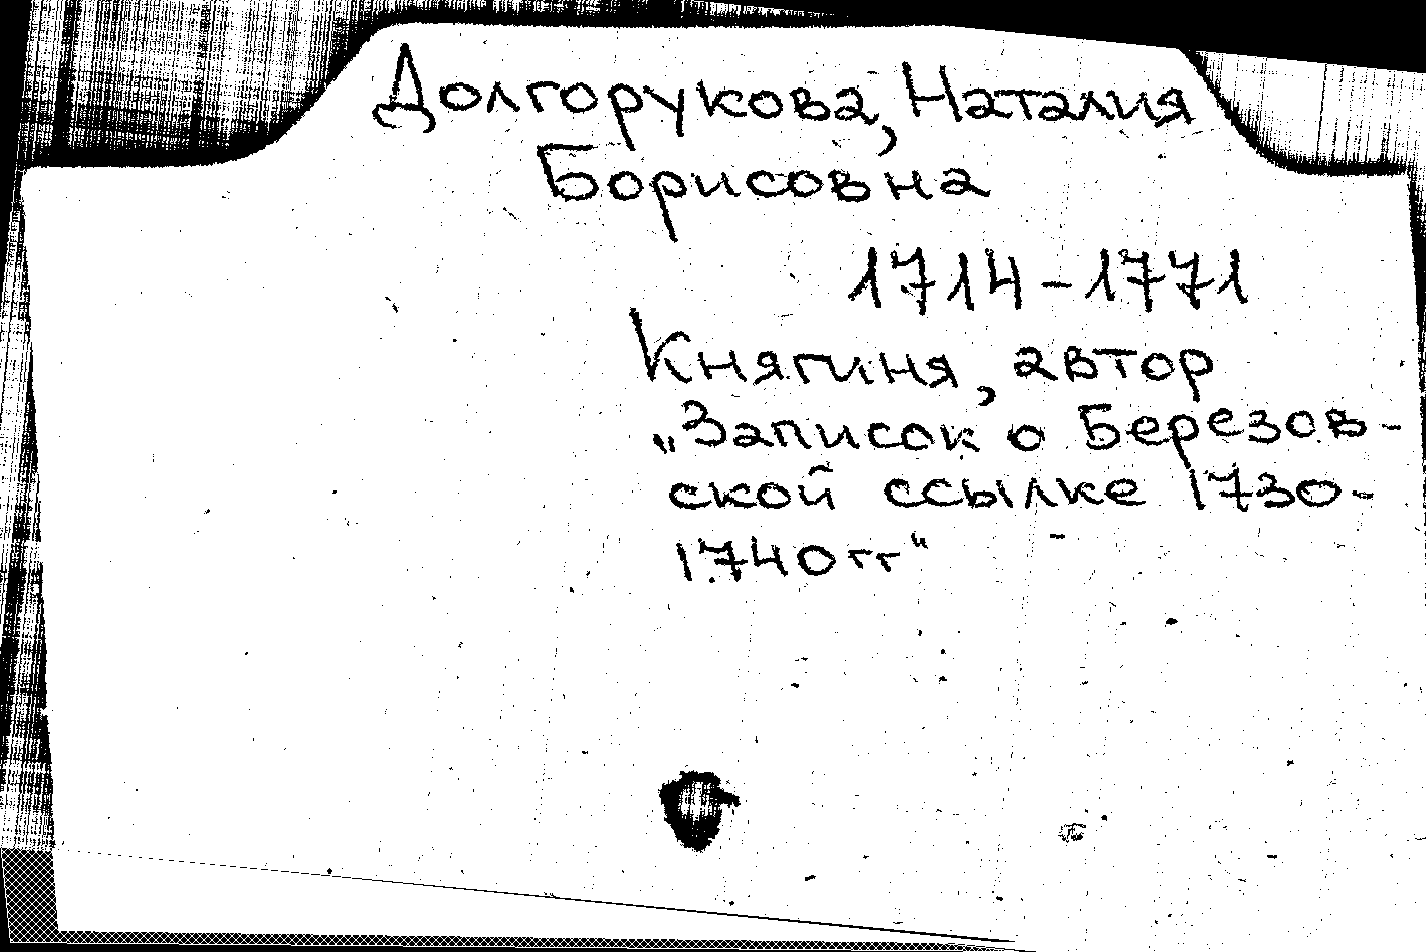 Долгорукова, Наталия
Борисовна
1714-1771
Княгиня, автор
„Записок о Березов-
ской ссылке 1730-
1740гг“